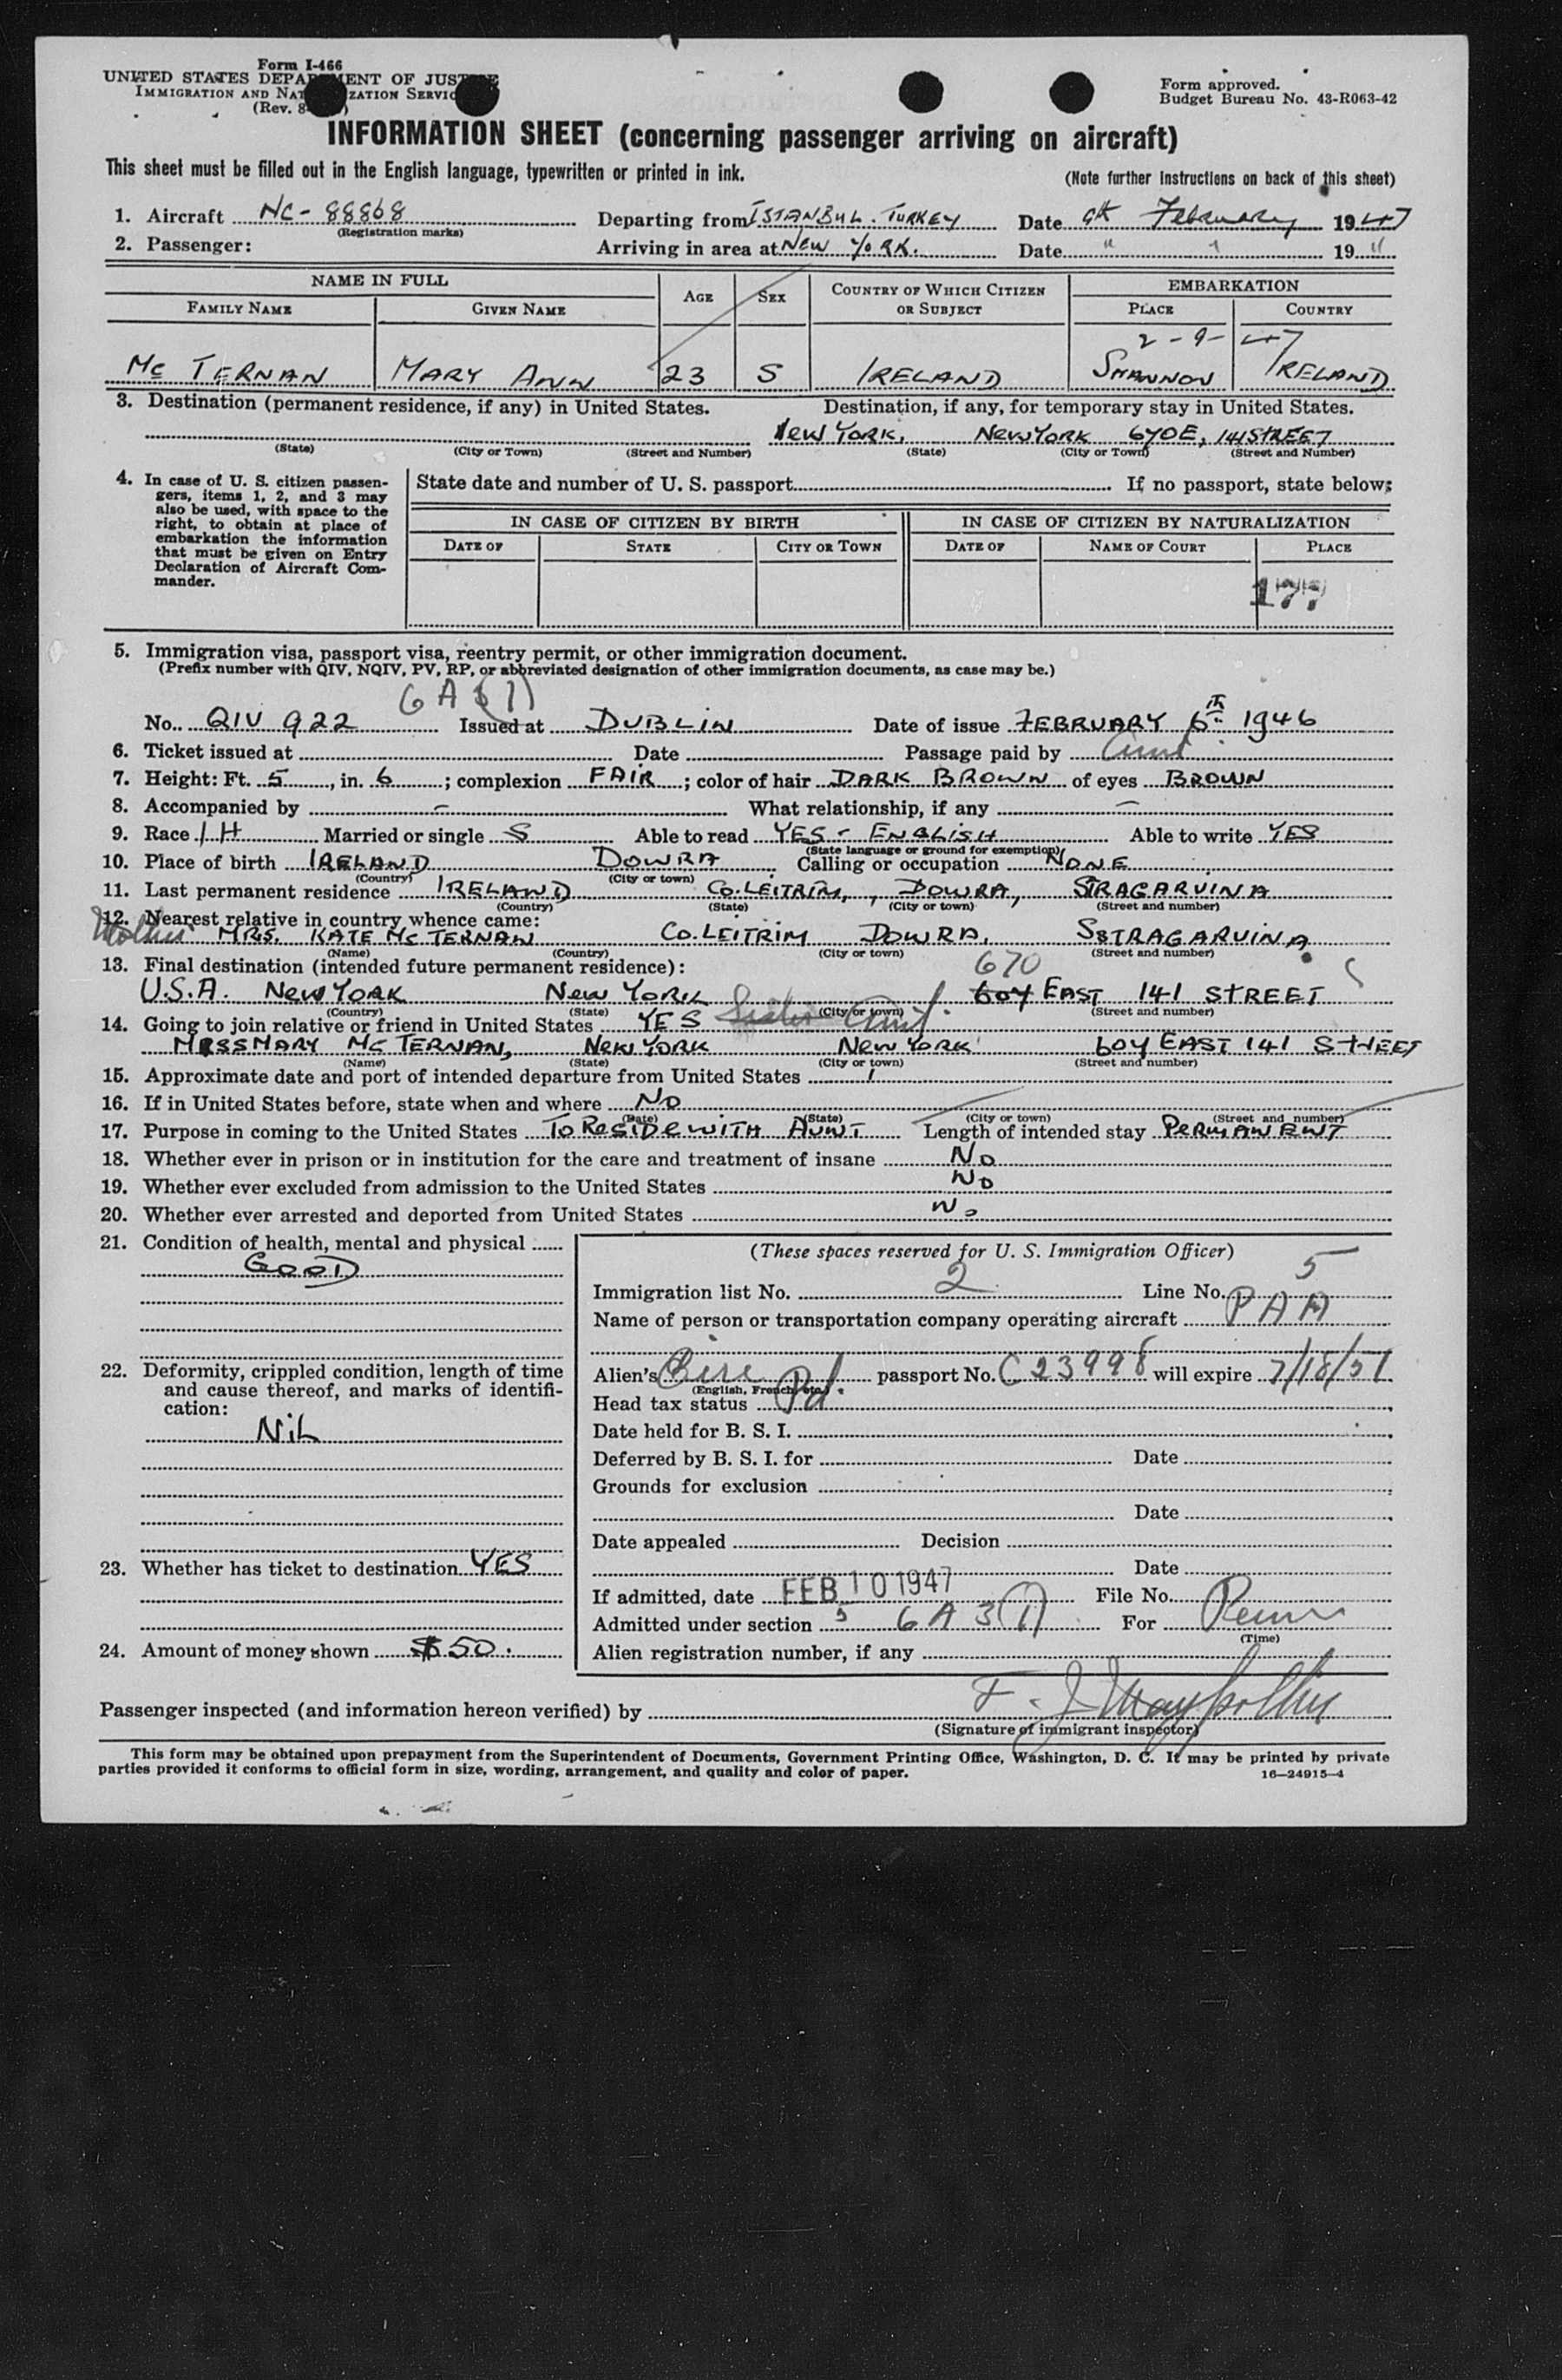 Form I-466
UNITED STATES DEPARTMENT OF JUSTICE
IMMIGRATION AND NATURALIZATION SERVICE
(Rev. 8
Form approved.
Budget Bureau No. 43-R063-42
INFORMATION SHEET (concerning passenger arriving on aircraft)
This sheet must be filled out in the English language, typewritten or printed in ink.
(Note further instructions on back of this sheet)
1. Aircraft NC-88868 Departing from ISTANBUL. TURKEY Date 9th February 1947
(Registration marks)
2. Passenger: Arriving in area at NEW YORK. Date " " 19 "
NAME IN FULL AGE SEX COUNTRY OF WHICH CITIZEN OR SUBJECT EMBARKATION
FAMILY NAME GIVEN NAME PLACE COUNTRY
2-9-47
Mc TERNAN MARY ANN 23 S IRELAND SHANNON IRELAND
3. Destination (permanent residence, if any) in United States. Destination, if any, for temporary stay in United States.
NEW YORK, NEW YORK 670E, 141 STREET
(State) (City or Town) (Street and Number) (State) (City or Town) (Street and Number)
4. In case of U. S. citizen passengers, items 1, 2, and 3 may also be used, with space to the right, to obtain at place of embarkation the information that must be given on Entry Declaration of Aircraft Commander.
State date and number of U. S. passport If no passport, state below:
IN CASE OF CITIZEN BY BIRTH IN CASE OF CITIZEN BY NATURALIZATION
DATE OF STATE CITY OR TOWN DATE OF NAME OF COURT PLACE
177
5. Immigration visa, passport visa, reentry permit, or other immigration document.
(Prefix number with QIV, NQIV, PV, RP, or abbreviated designation of other immigration documents, as case may be.)
6 A 3(1)
No. QIV 922 Issued at DUBLIN Date of issue FEBRUARY 6th 1946
6. Ticket issued at Date Passage paid by Aunt
7. Height: Ft. 5, in. 6; complexion FAIR; color of hair DARK BROWN of eyes BROWN
8. Accompanied by - What relationship, if any -
9. Race IH Married or single S Able to read YES - ENGLISH Able to write YES
(State language or ground for exemption)
10. Place of birth IRELAND DOWRA Calling or occupation NONE
(Country) (City or town)
11. Last permanent residence IRELAND CO. LEITRIM, DOWRA, STRAGARVINA
(Country) (State) (City or town) (Street and number)
12. Nearest relative in country whence came:
Mother MRS. KATE Mc TERNAN CO. LEITRIM DOWRA, SSTRAGARVINA
(Name) (Country) (City or town) (Street and number)
13. Final destination (intended future permanent residence): 670
U.S.A. NEW YORK NEW YORK 604 EAST 141 STREET
(Country) (State) (City or town) (Street and number)
14. Going to join relative or friend in United States YES Sister Aunt.
MRSSMARY Mc TERNAN, NEW YORK NEW YORK 604 EAST 141 STREET
(Name) (State) (City or town) (Street and number)
15. Approximate date and port of intended departure from United States
16. If in United States before, state when and where NO
(Date) (State) (City or town) (Street and number)
17. Purpose in coming to the United States TO RESIDE WITH AUNT Length of intended stay PERMANENT
18. Whether ever in prison or in institution for the care and treatment of insane NO
19. Whether ever excluded from admission to the United States NO
20. Whether ever arrested and deported from United States NO
21. Condition of health, mental and physical
GOOD
22. Deformity, crippled condition, length of time and cause thereof, and marks of identification:
NIL
23. Whether has ticket to destination YES
24. Amount of money shown $50.
(These spaces reserved for U. S. Immigration Officer)
Immigration list No. 2 Line No. 5
Name of person or transportation company operating aircraft PAA
Alien's Eire passport No. C 23998 will expire 7/18/51
(English, French, etc.)
Head tax status Pd.
Date held for B. S. I.
Deferred by B. S. I. for Date
Grounds for exclusion
Date
Date appealed Decision
Date
If admitted, date FEB 10 1947 File No.
Admitted under section 6 A 3(1) For Perm
(Time)
Alien registration number, if any
Passenger inspected (and information hereon verified) by F. J.
(Signature of immigrant inspector)
This form may be obtained upon prepayment from the Superintendent of Documents, Government Printing Office, Washington, D. C. It may be printed by private
parties provided it conforms to official form in size, wording, arrangement, and quality and color of paper.
16—24915-4